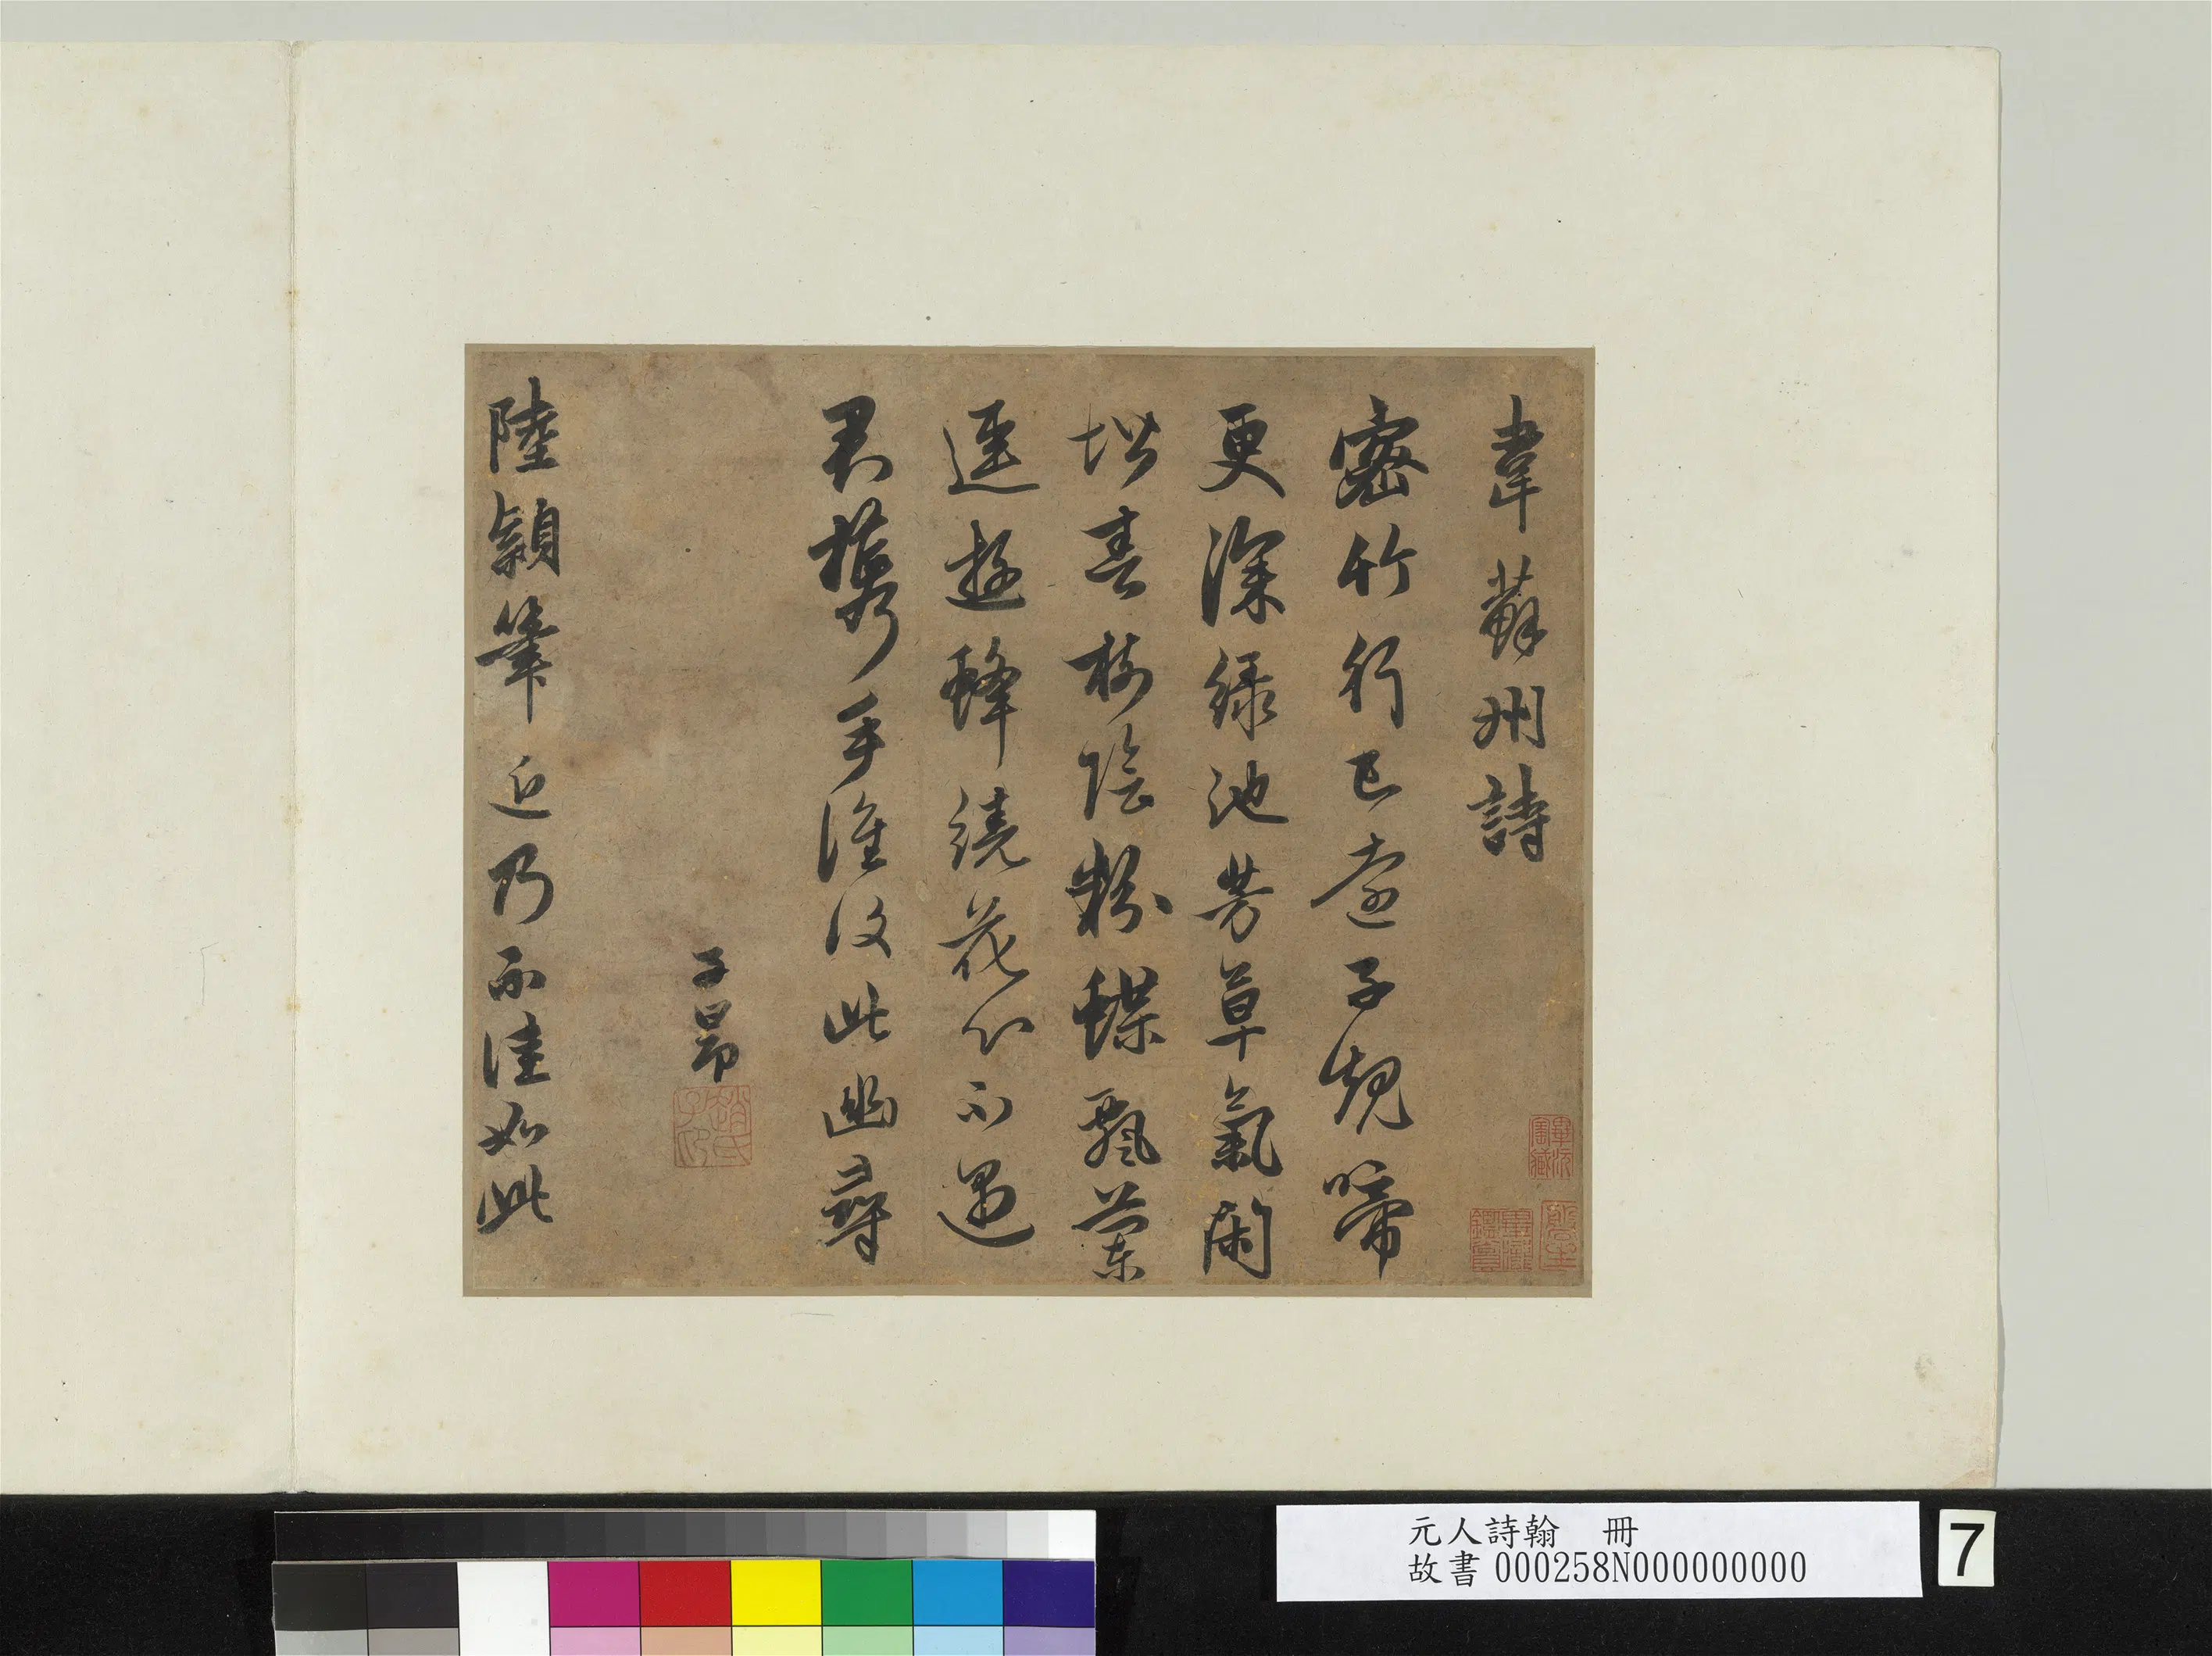 韋蘇州詩
密竹行已遠子規啼
更深綠池芳草氣閑
堦春樹陰粉蝶飄蘭
逕遊蜂繞花心不遇
君攜手誰復此幽尋
子昂
趙氏子昂
陸穎筆近乃不佳如此
元人詩翰 冊
故書 000258N000000000
7